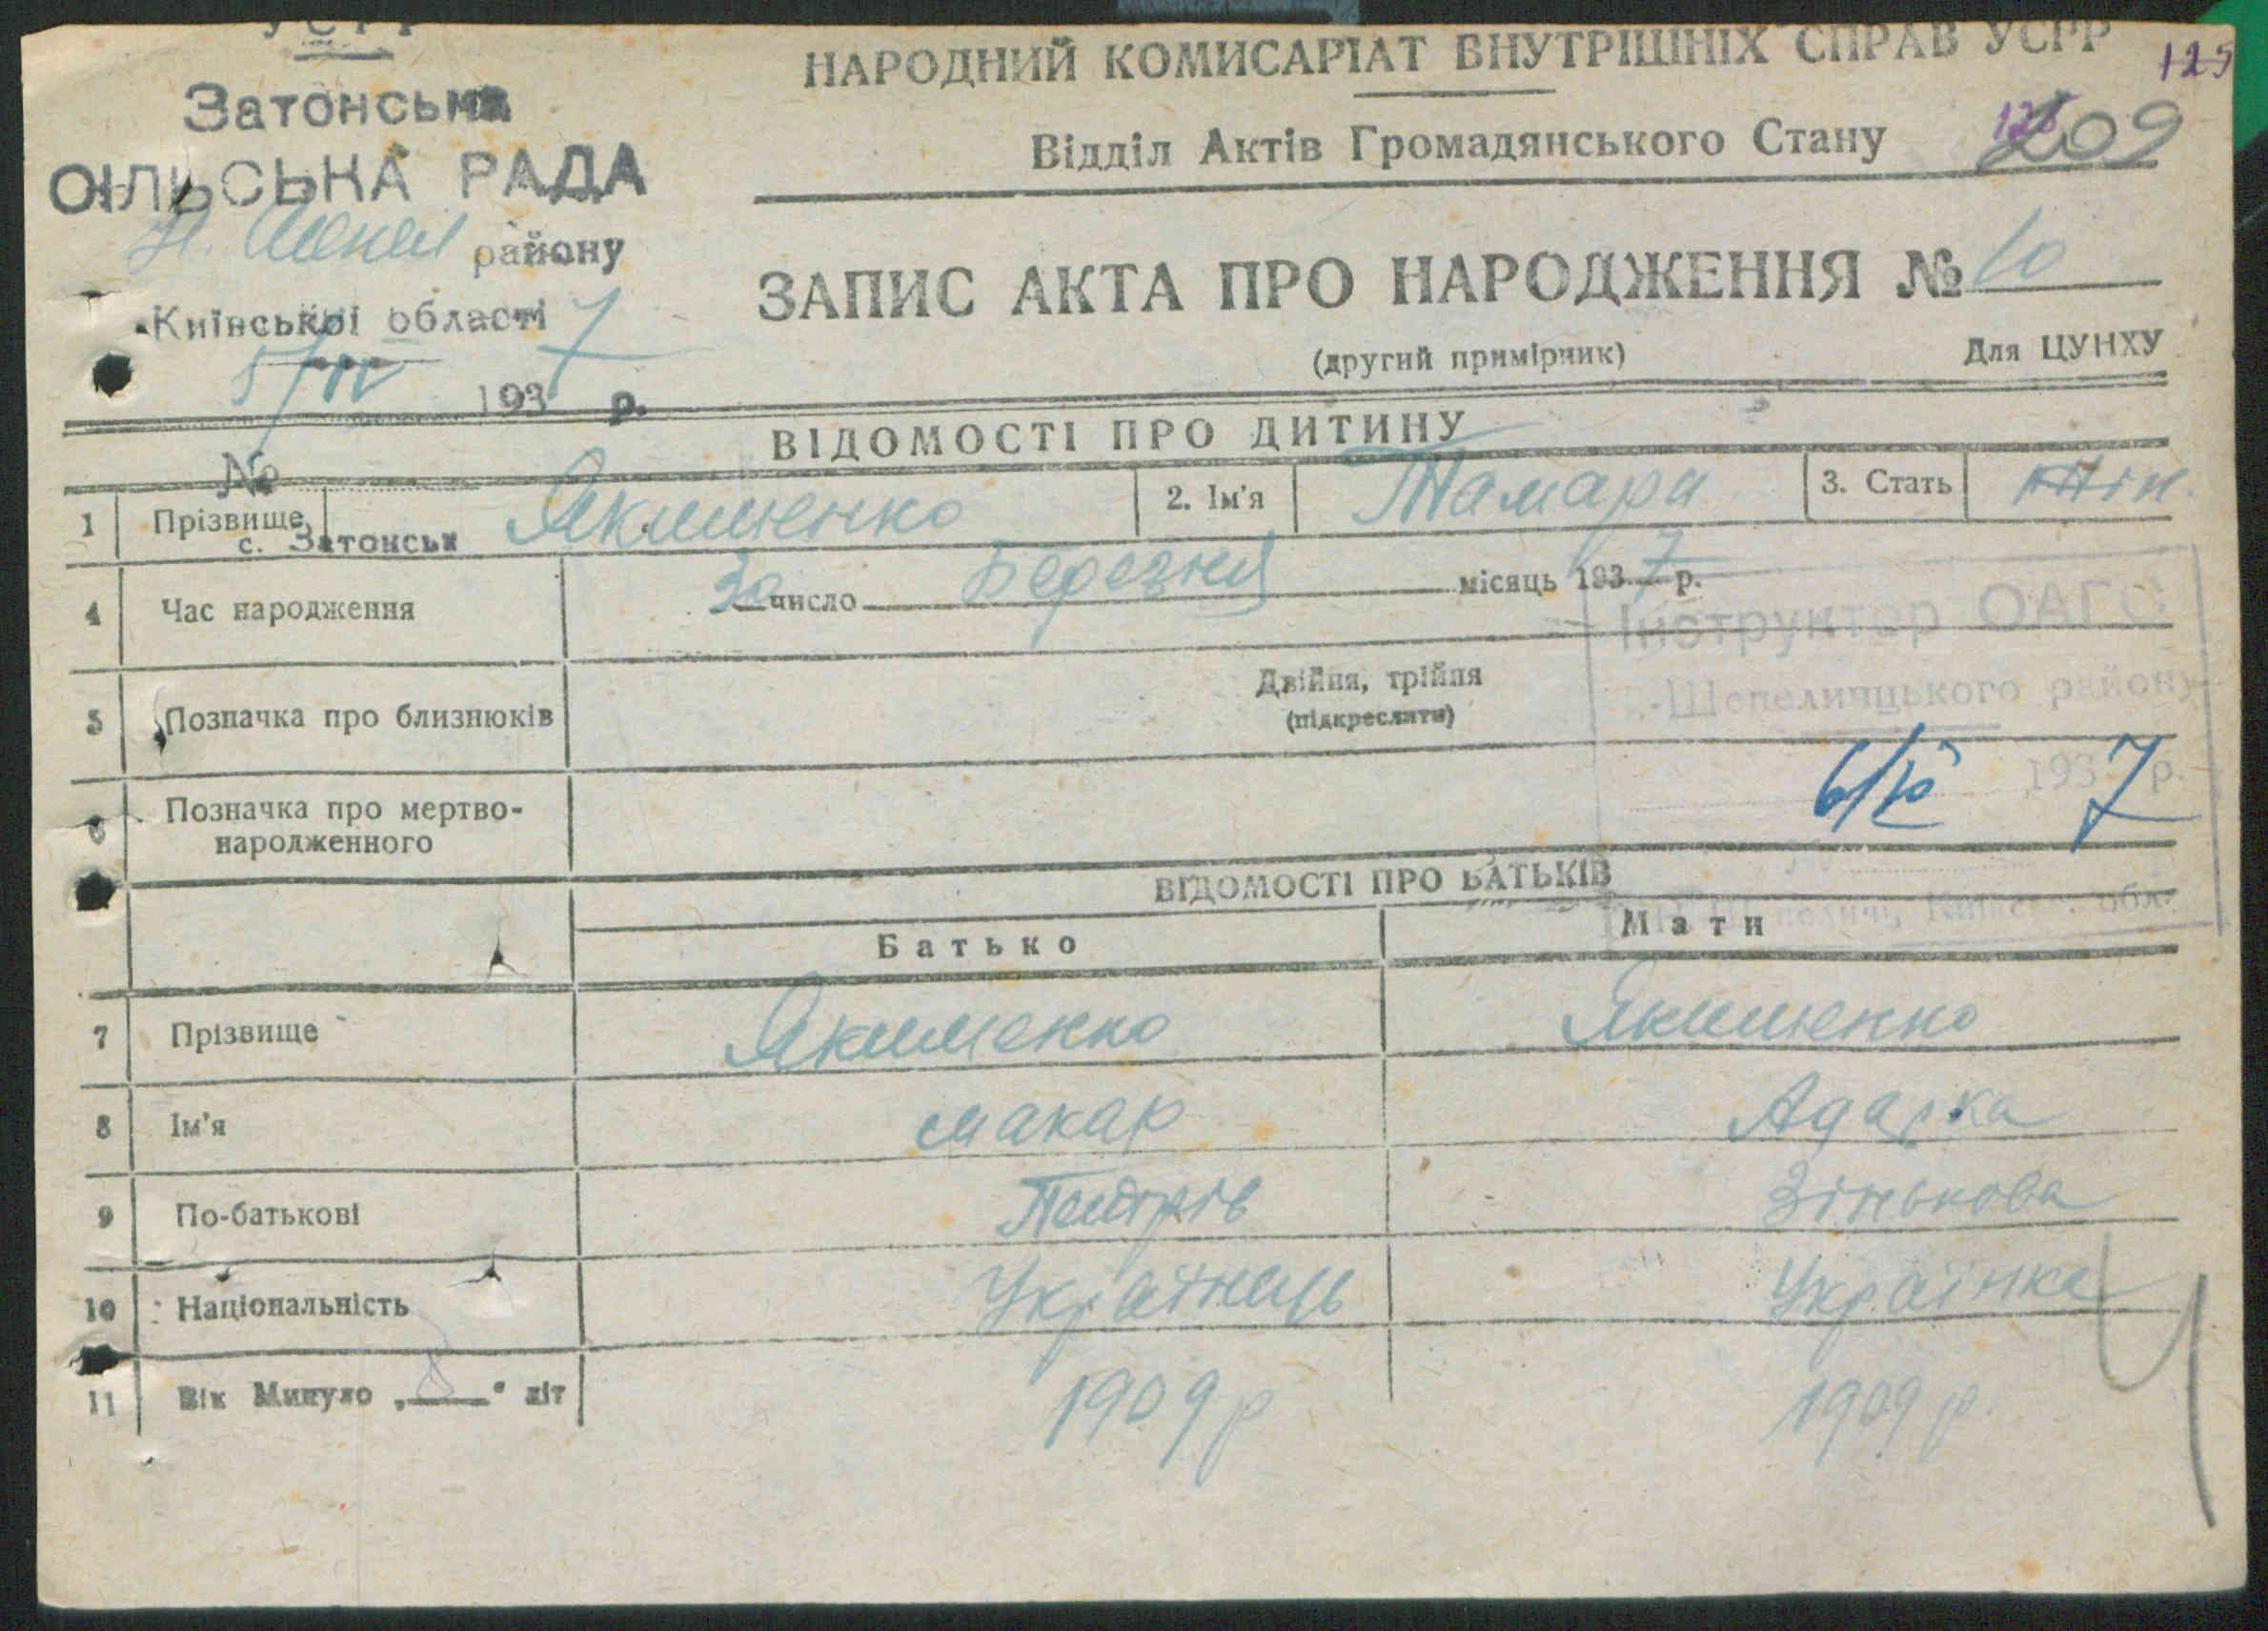 УСРР
Затонська
СІЛЬСЬКА РАДА
району
Київської області
5/IV 1937 р.
№
с. Затонськ
НАРОДНИЙ КОМИСАРІАТ ВНУТРІШНІХ СПРАВ УСРР
125
Відділ Актів Громадянського Стану
209
ЗАПИС АКТА ПРО НАРОДЖЕННЯ № 10
(другий примірник)
Для ЦУНХУ
ВІДОМОСТІ ПРО ДИТИНУ
1 Прізвище Якименко 2. Ім'я Тамара 3. Стать жін.
4 Час народження 30 число Березня місяць 1937 р.
Інструктор ОАГС
5 Позначка про близнюків Двійня, трійня
(підкреслити)
Шепелицького району
6 Позначка про мертво-
народженного
193 7 р.
ВІДОМОСТІ ПРО БАТЬКІВ
обл.
Батько Мати
7 Прізвище Якименко Якименко
8 Ім'я макар Адарка
9 По-батькові Петрів Зінькова
10 Національність Українець Українка
11 Вік Минуло „ " літ 1909 р 1909 р.